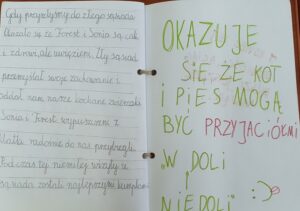 Gdy przyszłyśmy do złego sąsiada
okazało się że Forest i Sonia są cali
i zdrowi, ale uwięzieni. Zły sąsiad
przemyślał swoje zachowanie i
oddał nam nasze kochane zwierzęta
Sonia i Forest wypuszczeni z
klatki radośnie do nas przybiegli.
Podczas tej niemiłej wizyty
sąsiada zostali najlepszymi kumplami
OKAZUJE
SIĘ, ŻE KOT
I PIES MOGĄ
BYĆ PRZYJACIÓŁMI
"W DOLI
I
NIEDOLI" :)